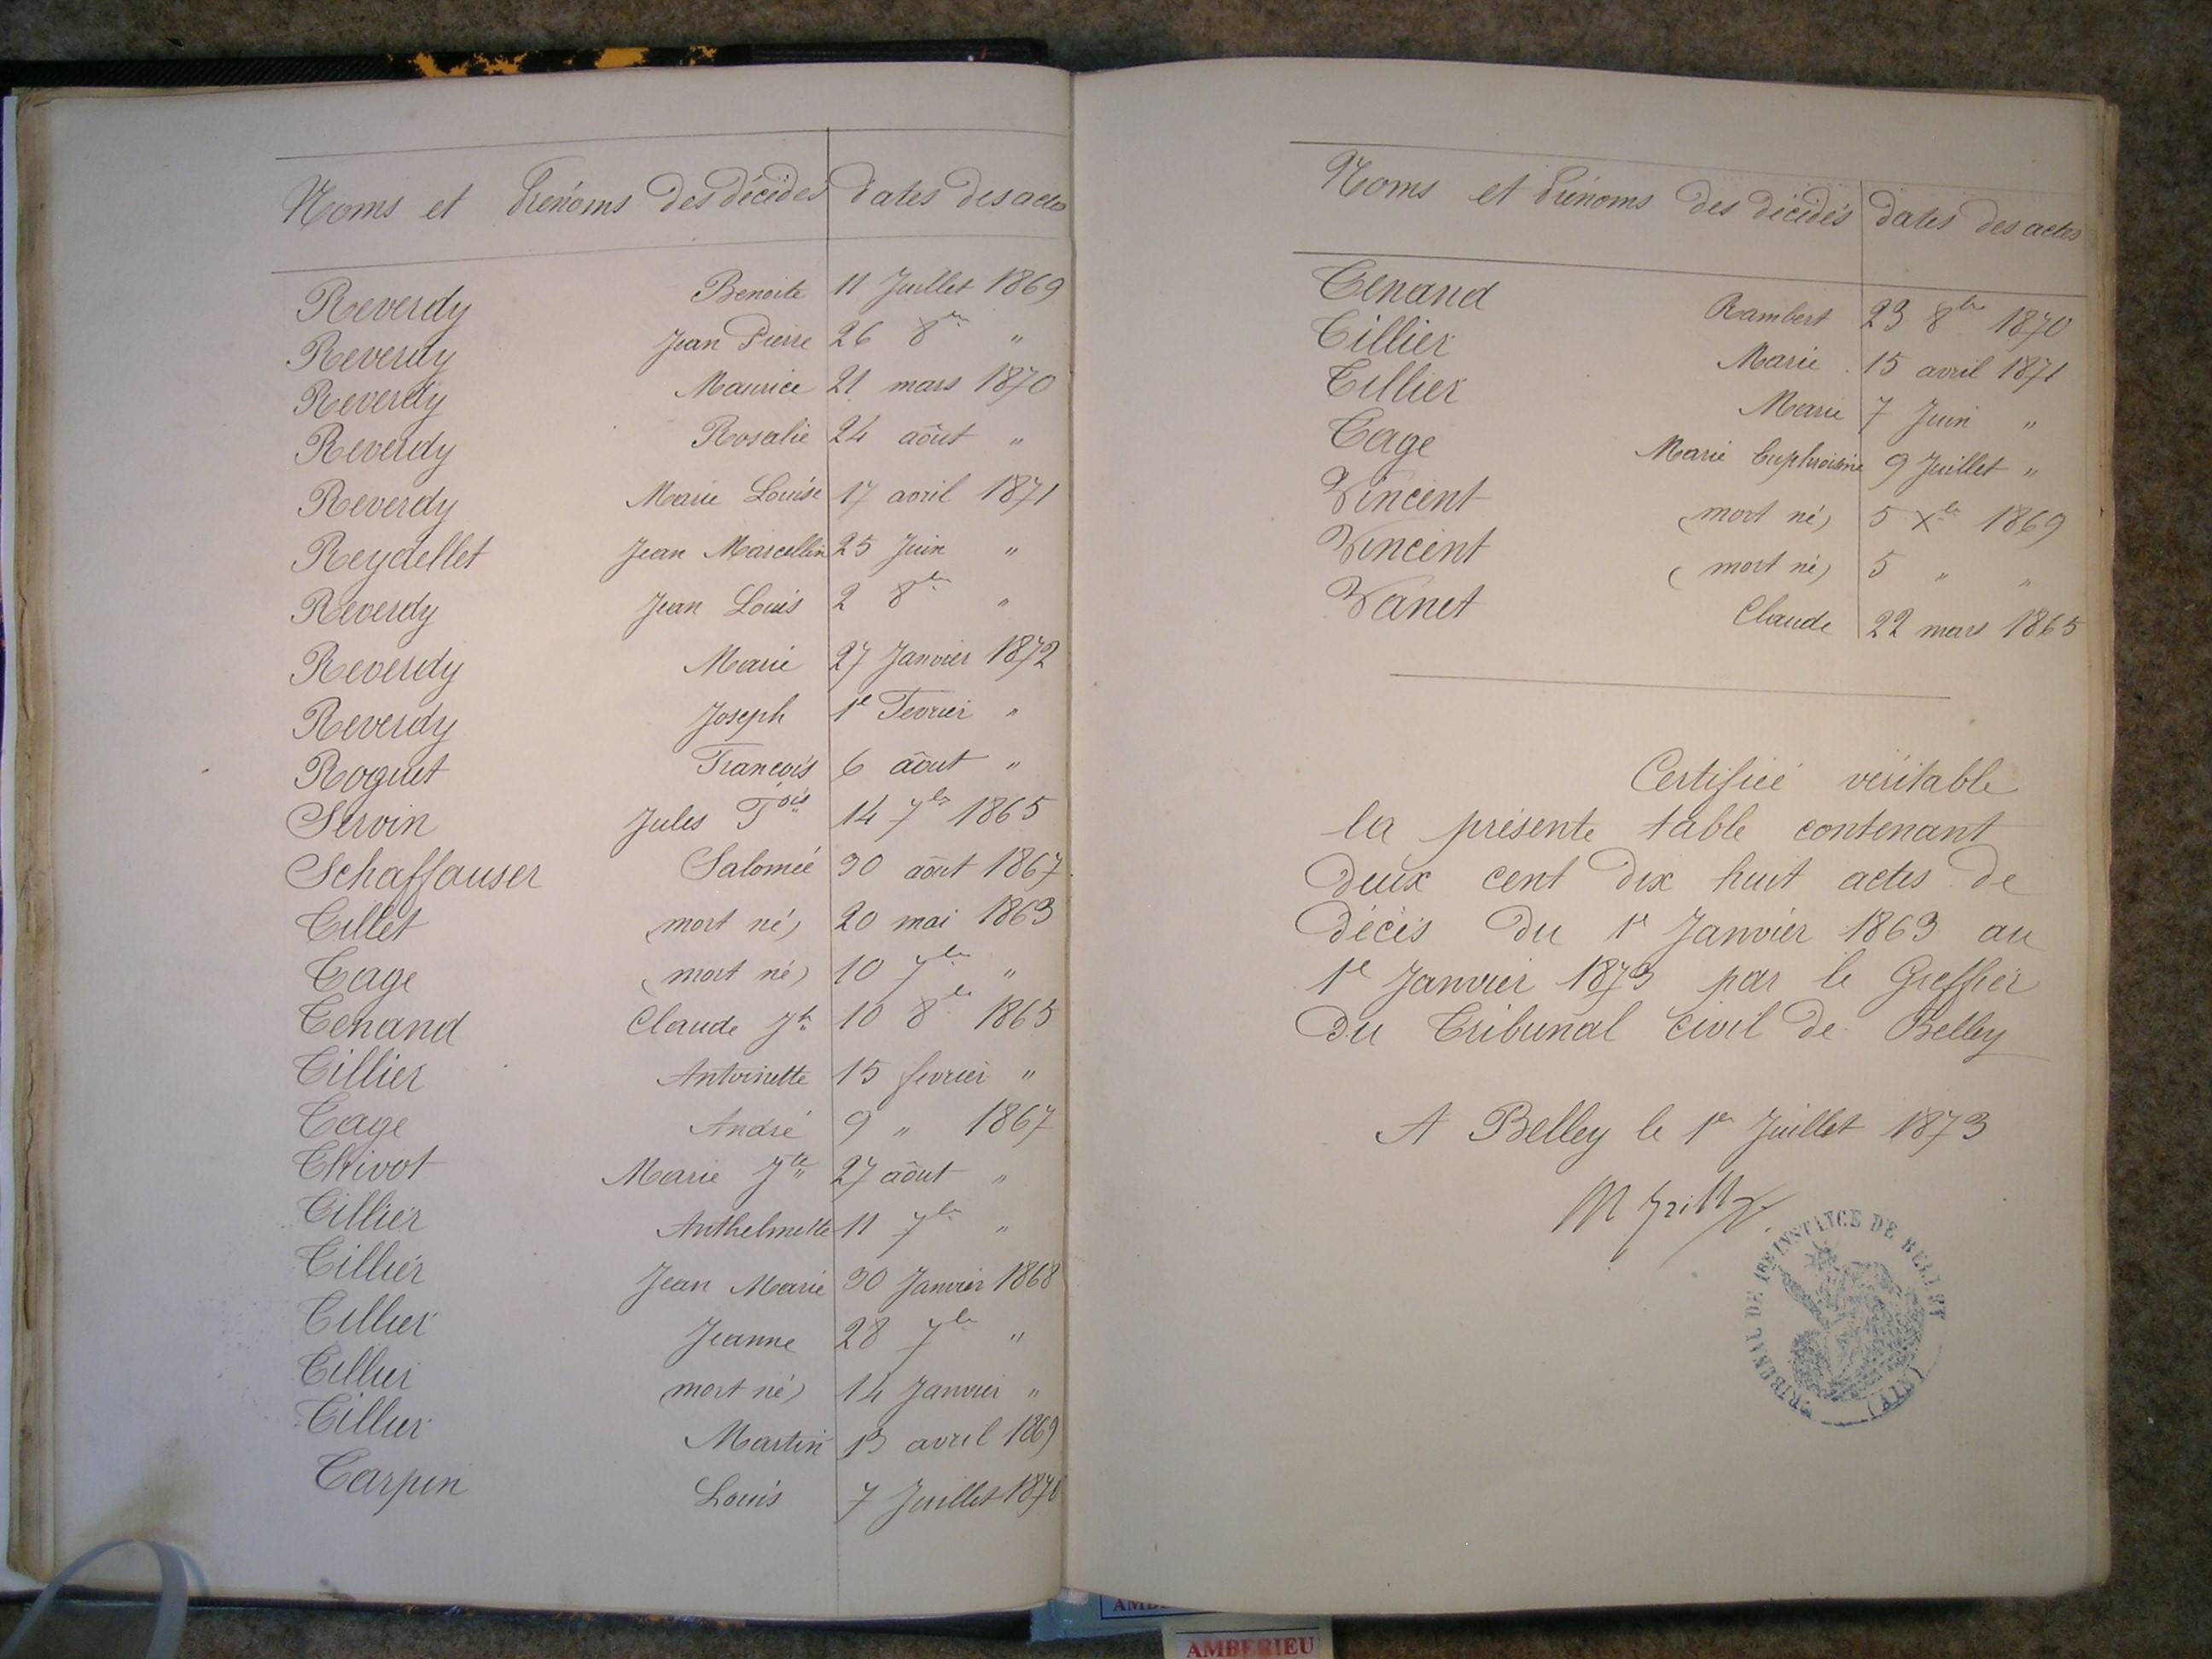 Noms et Prénoms des décédés dates des actes
Reverdy Benoite 11 Juillet 1869
Reverdy Jean Pierre 26 8bre "
Reverdy Maurice 21 mars 1870
Reverdy Rosalie 24 aôut "
Reverdy Marie Louise 17 avril 1871
Reydellet Jean Marcellin 25 Juin "
Reverdy Jean Louis 2 8bre "
Reverdy Marie 27 Janvier 1872
Reverdy Joseph 1e Fevrier "
Roguet François 6 aôut "
Servin Jules Fois 14 7bre 1865
Schaffauser Salomée 30 aôut 1867
Tillet (mort né) 20 mai 1863
Tage (mort né) 10 7bre "
Tenand Claude Jh 10 8bre 1865
Tillier Antoinette 15 fevrier "
Tage André 9 " 1867
Thivot Marie Jte 27 aôut "
Tillier Anthelmette 11 7bre "
Tillier Jean Marie 30 Janvier 1868
Tillier Jeanne 28 7bre "
Tillier (mort né) 14 Janvier "
Tillier Martin 13 avril 1869
Tarpin Louis 7 Juillet
Noms et Prénoms des décédés dates des actes
Tenand Rambert 23 8bre 1870
Tillier Marie 15 avril 1871
Tillier Marie 7 Juin "
Tage Marie Euphroisine 9 Juillet "
Vincent (mort né) 5 Xbre 1869
Vincent (mort né) 5 " "
Vanet Claude 22 mars 1865
Certifié véritable
la présente table contenant
deux cent dix huit actes de
décès du 1er Janvier 1863 au
1e Janvier 1873 par le Greffier
du Tribunal Civil de Belley
A Belley le 1er Juillet 1873
TRIBUNAL DE 1ERE INSTANCE DE BELLEY
(AIN)
AMBERIEU